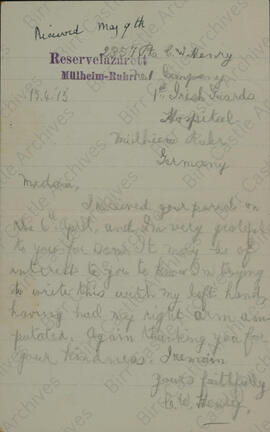 Received May 9th
Pte C W Henry
Reservelazarett
Mülheim-Ruhr
Company
13.4.15
1st Irish Guards
Hospital
Mülheim Ruhr
Germany
Madam,
I received your parcel on
the 6th April, and I'm very grateful
to you for same. It may be of
interest to you to know I'm trying
to write this with my left hand,
having had my right arm am-
putated. Again thanking you for
your kindness. I remain
Yours faithfully
C. W. Henry.
Birr Castle Archives